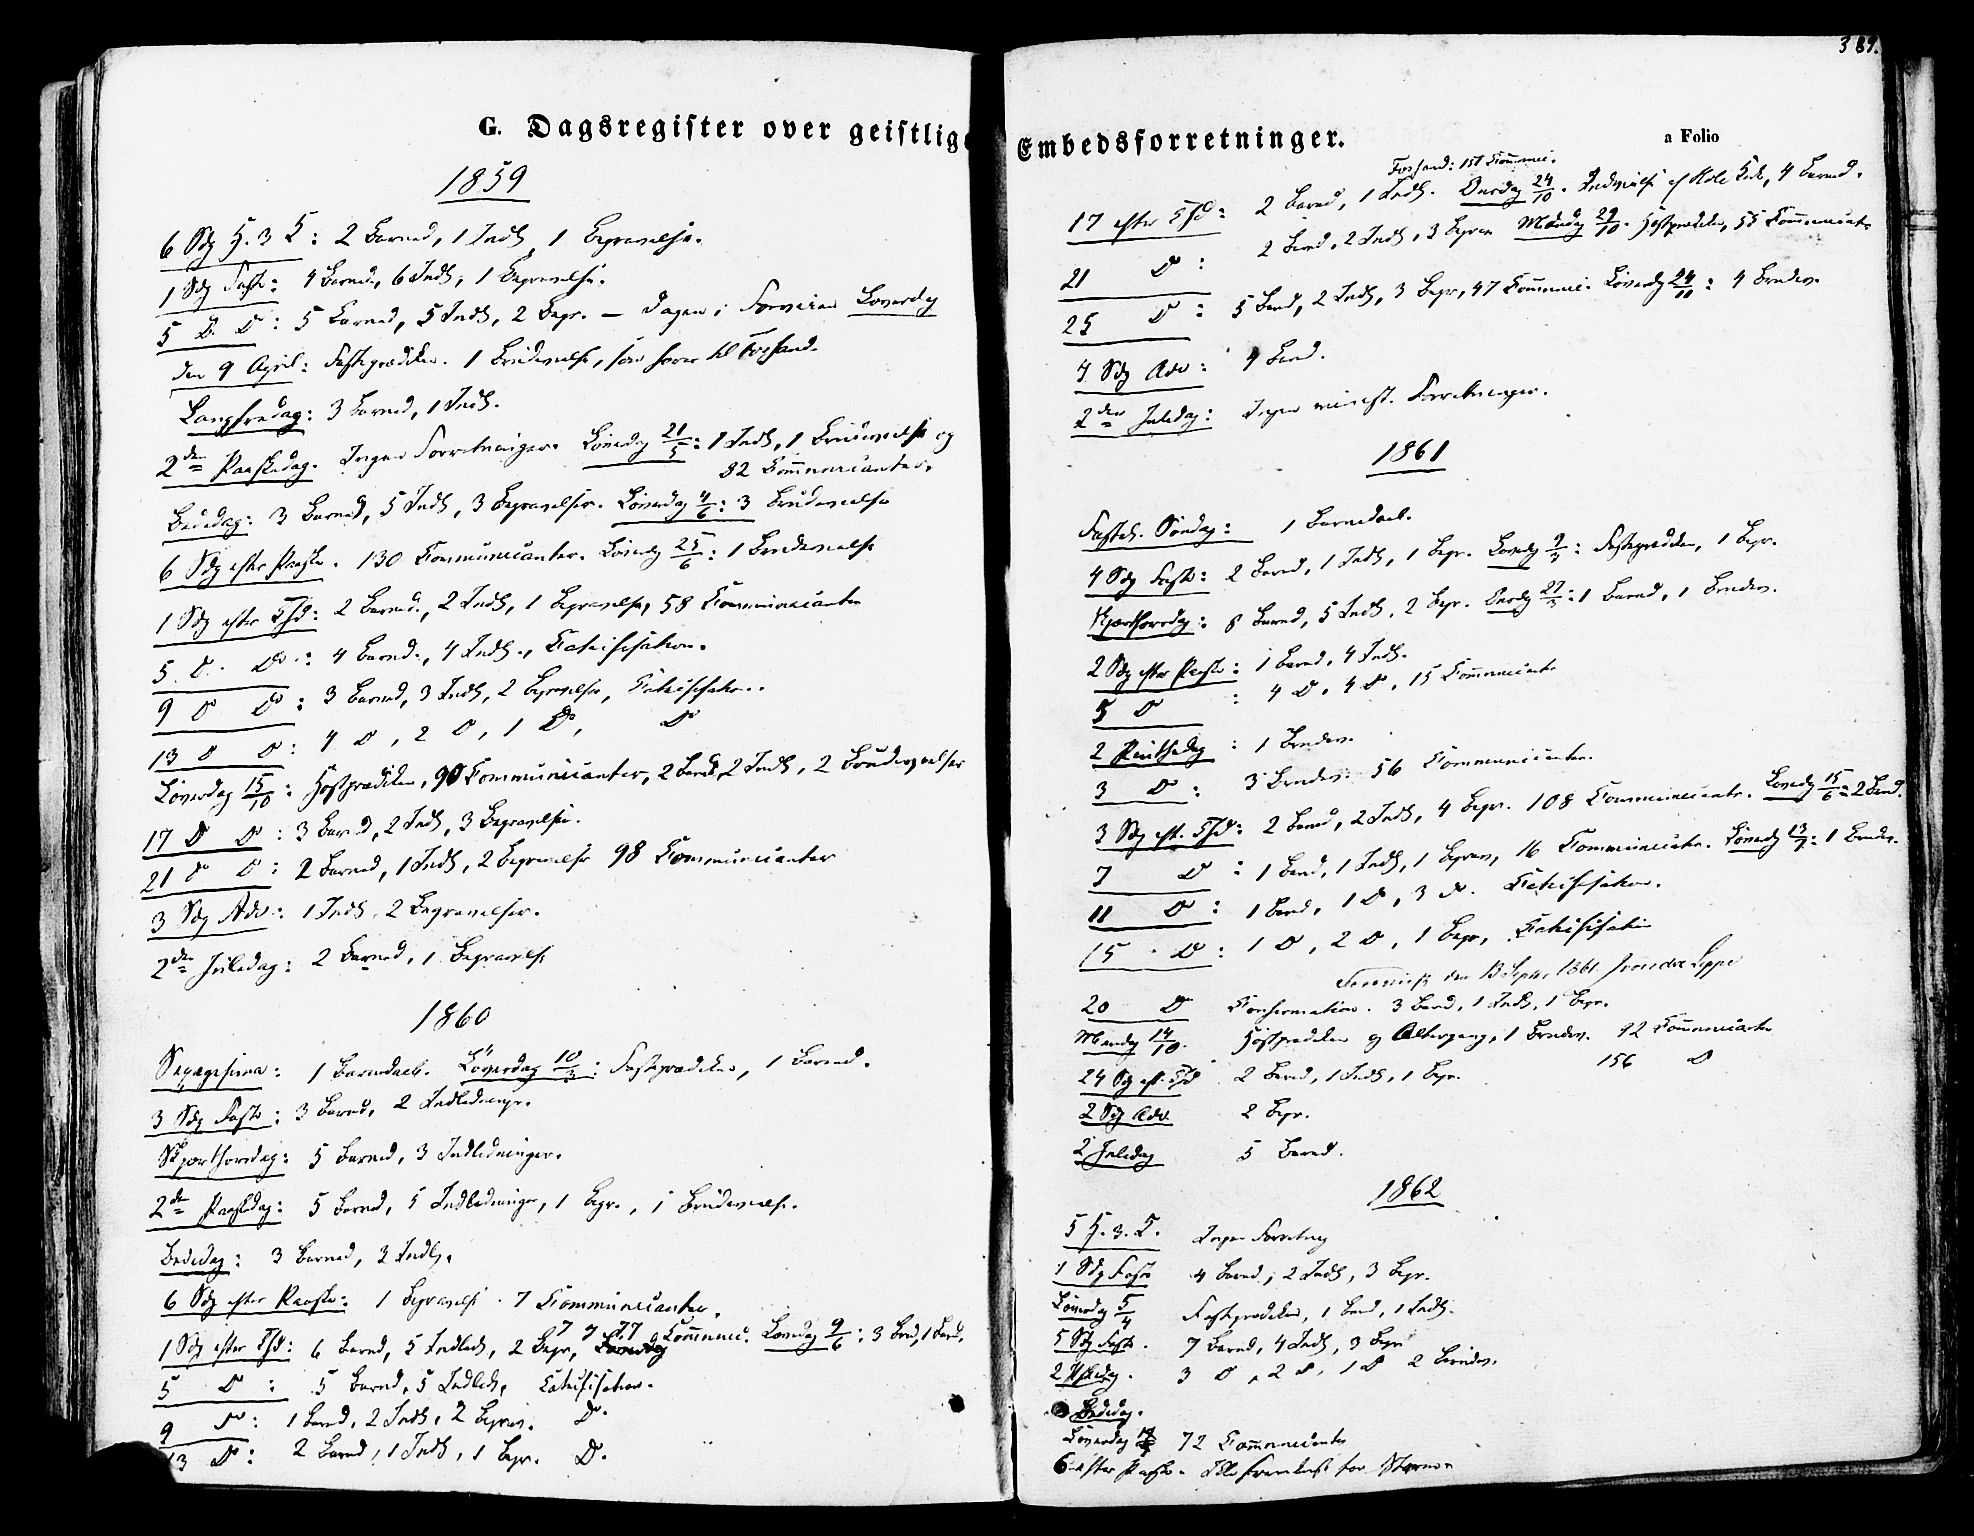 G. Dagsregister over geistlige Embedsforretninger.
a Folio
389.
1859
6 Sdg H. 3 K: 2 Barned, 1 Indl, 1 Begravelse.
1 Sdg Faste: 4 Barned, 6 Indl, 1 Begravelse.
5 D. D: 5 Barned, 5 Indl, 2 Begr. — Dagen i Forveien Løverdag
den 9 April: Fasteprædiken. 1 Brudevielse, som hører til Fossand.
Langfredag: 3 Barned, 1 Indl.
2den Paaskedag. Ingen Forretninger. Løverdag 21/5: 1 Indl, 1 Brudevielse og
82 Communicanter.
Bededag: 3 Barned, 5 Indl, 3 Begravelser. Løverdag 4/6: 3 Brudevielse
6 Sdg efter Paaske. 130 Communicanter. Løverdg 25/6: 1 Brudevielse
1 Sdg efter Tfd: 2 Barned., 2 Indl, 1 Begravelse, 58 Communicanter
5 D. D.: 4 Barned., 4 Indl., Katechisation.
9 D D: 3 Barned, 3 Indl, 2 Begravelse, Katechisation.
13 D D: 4 D, 2 D, 1 D, D
Løverdag 15/10: Høstprædiken, 90 Communicanter, 2 Barned, 2 Indl, 2 Brudevielser
17 D D: 3 Barned, 2 Indl, 3 Begravelse.
21 D D: 2 Barned, 1 Indl, 2 Begravelse 98 Communicanter
3 Sdg Adv.: 1 Indl, 2 Begravelser.
2den Juledag: 2 Barned, 1 Begravelse
1860
Sexagesima: 1 Barnedaab. Løverdag 10/3: Fasteprædiken, 1 Barned.
3 Sdg Faste: 3 Barned, 2 Indledninger.
Skjærthorsdag: 5 Barned, 3 Indledninger.
2den Paaskedag: 5 Barned, 5 Indledninger, 1 Begr., 1 Brudevielse.
Bededag: 3 Barned, 3 Indl.
6 Sdg efter Paaske: 1 Begravelse. 7 Communicanter.
1 Sdg efter Tfd: 6 Barned, 5 Indled, 2 Begr, 77 Communic. Løverdag 9/6: 3 Brud, 1 Barned.
5 D: 5 Barned, 5 Indled, Catechisation.
9 D: 1 Barned, 2 Indl, 2 Begrav. D.
13 D: 2 Barned, 1 Indl, 1 Begr. D.
Fossand: 151 Communic.
17 efter Tfd: 2 Barned, 1 Indl. Onsdag 24/10. Indvielse af Hole Kirke, 4 Barned.
21 D: 2 Barned, 2 Indl, 3 Begrav. Mandag 29/10. Høstprædiken, 55 Communicanter
25 D: 5 Barned, 2 Indl, 3 Begr, 47 Communic. Løverdg 24/11: 4 Brudev.
4 Sdg Adv: 4 Barned.
2den Juledag: Ingen minist. Forretninger.
1861
Fastel. Søndag: 1 Barnedaab.
4 Sdg Faste: 2 Barned, 1 Indl, 1 Begr. Løverdg 9/3: Fasteprædiken, 1 Begr.
Skjærthorsdag: 8 Barned, 5 Indl, 2 Begr. Onsdg 27/3: 1 Barned, 1 Brudev.
2 Sdg efter Paaske: 1 Barned, 4 Indl.
5 D: 4 D, 4 D, 15 Communicanter
2 Pintsedag: 1 Brudev.
3 D: 3 Brudev. 56 Communicanter.
3 Sdg eft. Tfd: 2 Barned, 2 Indl, 4 Begr. 108 Communicanter. Løverdg 15/6: 2 Barned.
7 D: 1 Barned, 1 Indl, 1 Begrav, 16 Communicanter. Løverdg 13/7: 1 Brudev.
11 D: 1 Barned, 1 D, 3 D. Katechisation.
15 D: 1 D, 2 D, 1 Begr, Katechisation
den 13 Septbr. 1861. J von der Lippe
20 D Confirmation. 3 Barned, 1 Indl, 1 Begr.
Mandag 14/10. Høstprædiken og Altergang, 1 Brudev. 92 Communicanter
156 D
24 Sdg eft. Tfd 2 Barned, 1 Indl, 1 Begr.
2 Sdg Adv. 2 Begr.
2 Juledag 5 Barned.
1862
5 H. 3. K. Ingen Forretning
1 Sdg Faste 4 Barned, 2 Indl, 3 Begr.
Løverdag 5/4 Fasteprædiken, 1 Barned, 1 Indl.
5 Sdg Faste. 7 Barned, 4 Indl, 3 Begr
2 Paaskedag. 3 D, 2 D, 1 D 2 Brudev.
Bededag.
Løverdag 72 Communicanter
6 efter Paaske. for Storm